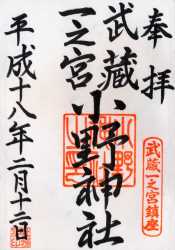 奉拝
武蔵一之宮鎮座
武蔵
一之宮
小野神社
平成十八年二月十二日